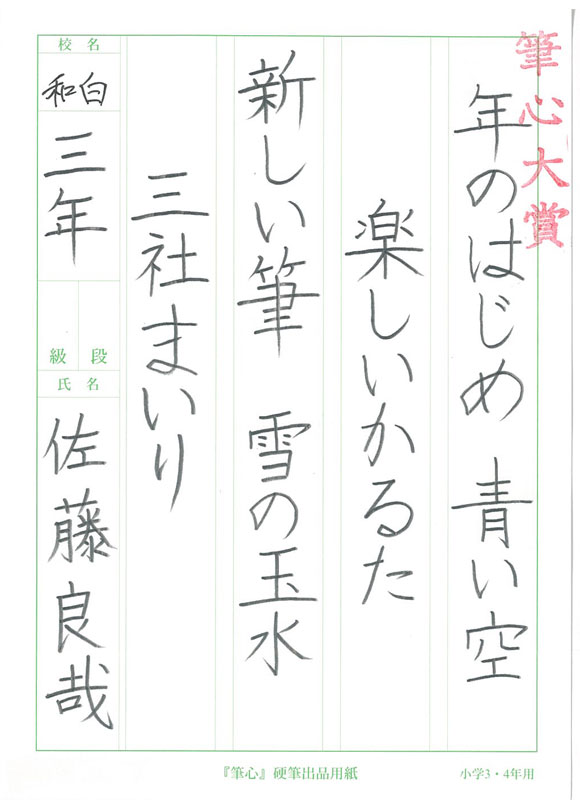 筆心大賞
年のはじめ　青い空
楽しいかるた
新しい筆　雪の玉水
三社まいり
校名
和白
三年
段
級
氏名
佐藤良哉
『筆心』硬筆出品用紙
小学3・4年用